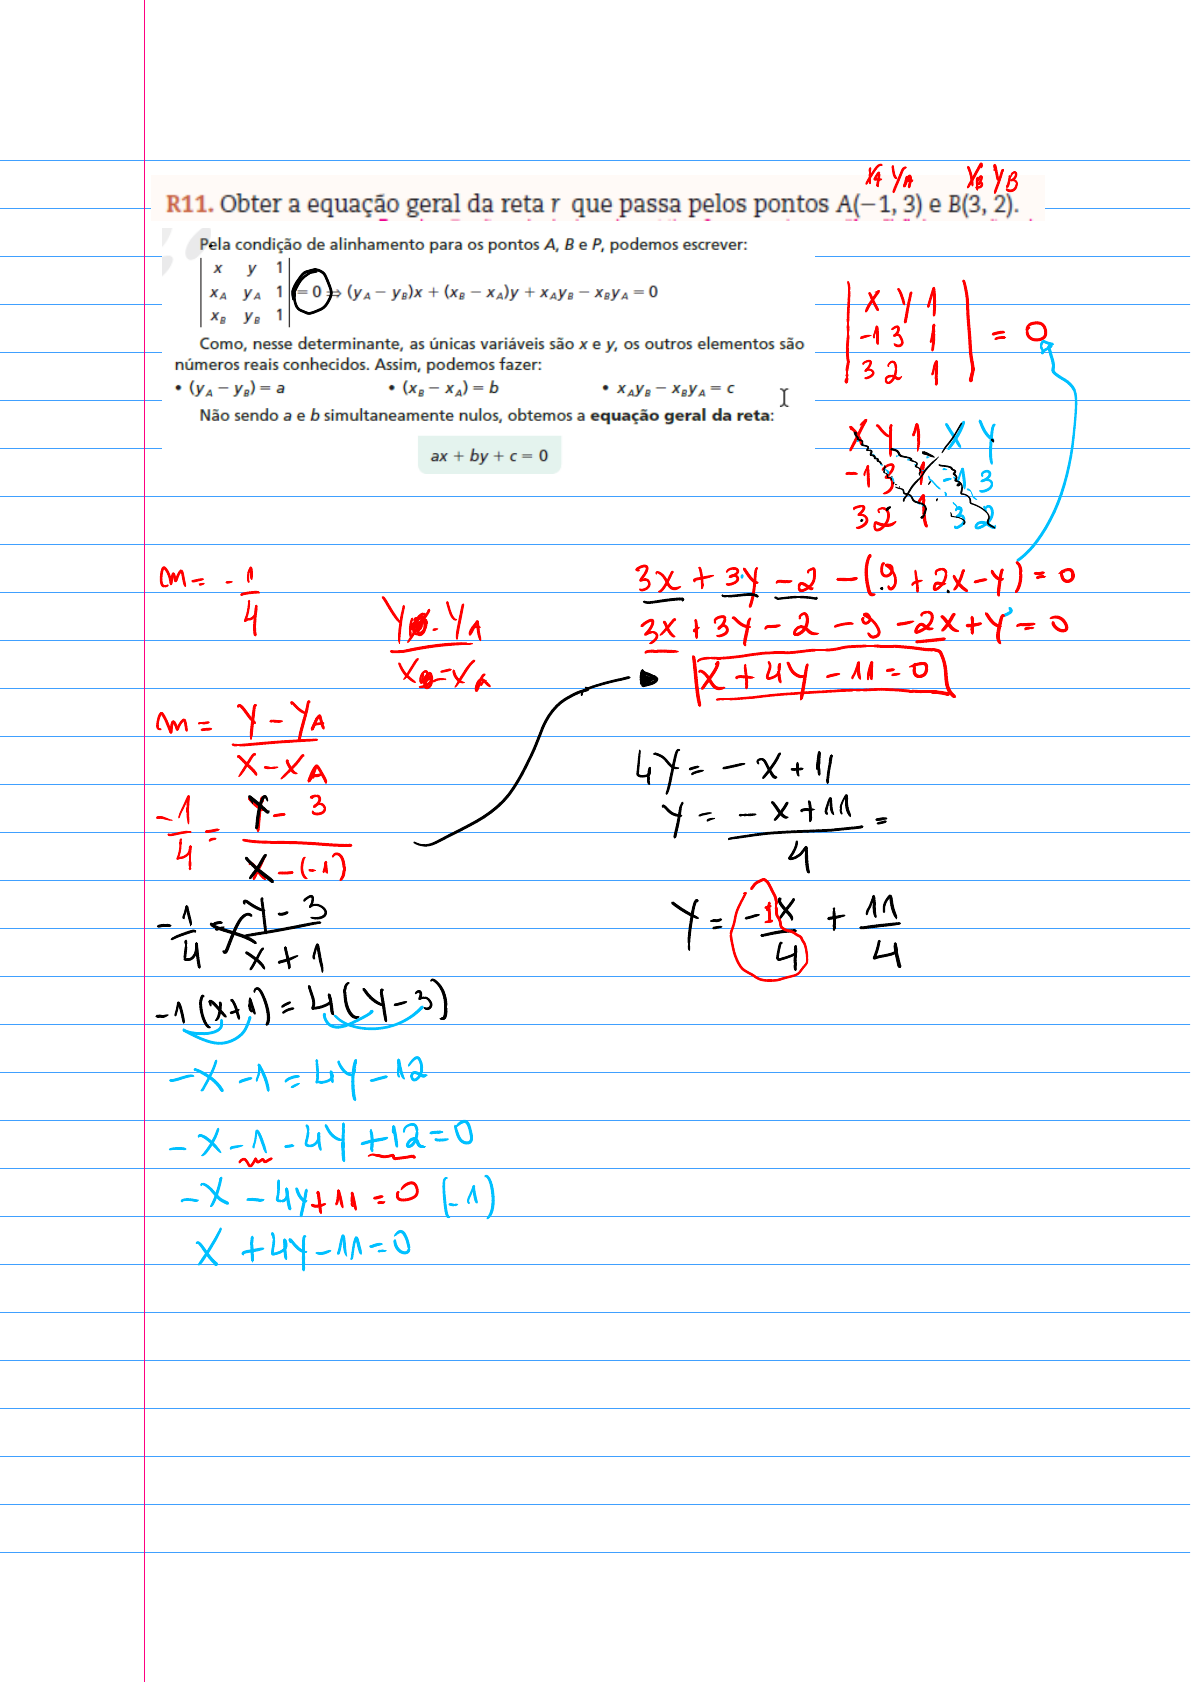 x_A y_A x_B y_B
R11. Obter a equação geral da reta r que passa pelos pontos A(−1, 3) e B(3, 2).
Pela condição de alinhamento para os pontos A, B e P, podemos escrever:
x y 1
x_A y_A 1 = 0 ⇒ (y_A − y_B)x + (x_B − x_A)y + x_Ay_B − x_By_A = 0
x_B y_B 1
Como, nesse determinante, as únicas variáveis são x e y, os outros elementos são
números reais conhecidos. Assim, podemos fazer:
• (y_A − y_B) = a • (x_B − x_A) = b • x_Ay_B − x_By_A = c
Não sendo a e b simultaneamente nulos, obtemos a equação geral da reta:
ax + by + c = 0
x y 1
-1 3 1 = 0
3 2 1
x y 1 x y
-1 3 1 -1 3
3 2 1 3 2
3x + 3y - 2 - (9 + 2x - y) = 0
3x + 3y - 2 - 9 - 2x + y = 0
x + 4y - 11 = 0
4y = - x + 11
y = - x + 11 =
4
y = -1x + 11
4 4
m = - 1
4
y - y_A
x - x_A
m = y - y_A
x - x_A
-1 = y - 3
4 x - (-1)
-1 = y - 3
4 x + 1
-1 (x+1) = 4 (y - 3)
-x - 1 = 4y - 12
- x - 1 - 4y + 12 = 0
- x - 4y + 11 = 0 (-1)
x + 4y - 11 = 0